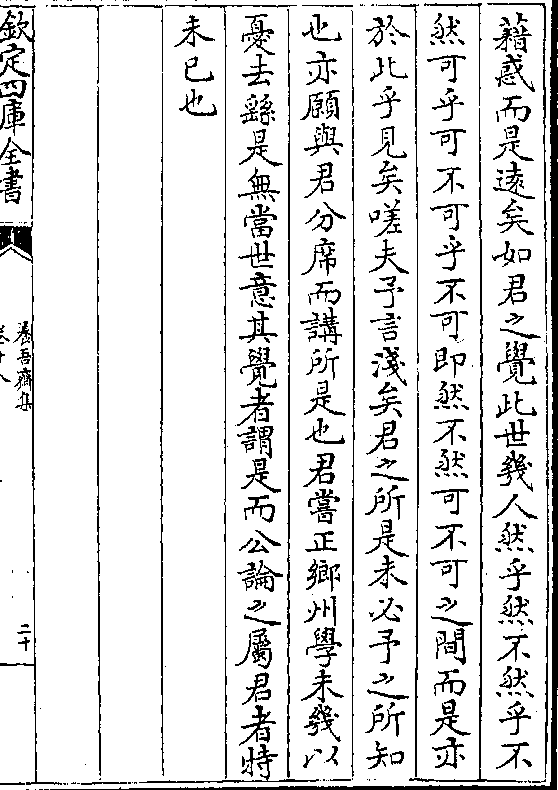 藉惑而是遠矣如君之覺此世幾人然乎然不然乎不
然可乎可不可乎不可即然不然可不可之間而是亦
於此乎見矣嗟夫予言淺矣君之所是未必予之所知
也亦願與君分席而講所是也君嘗正鄉州學未幾以
憂去繇是無當世意其覺者謂是而公論之屬君者時
未已也
欽定四庫全書
養吾齋集
卷十八
二十